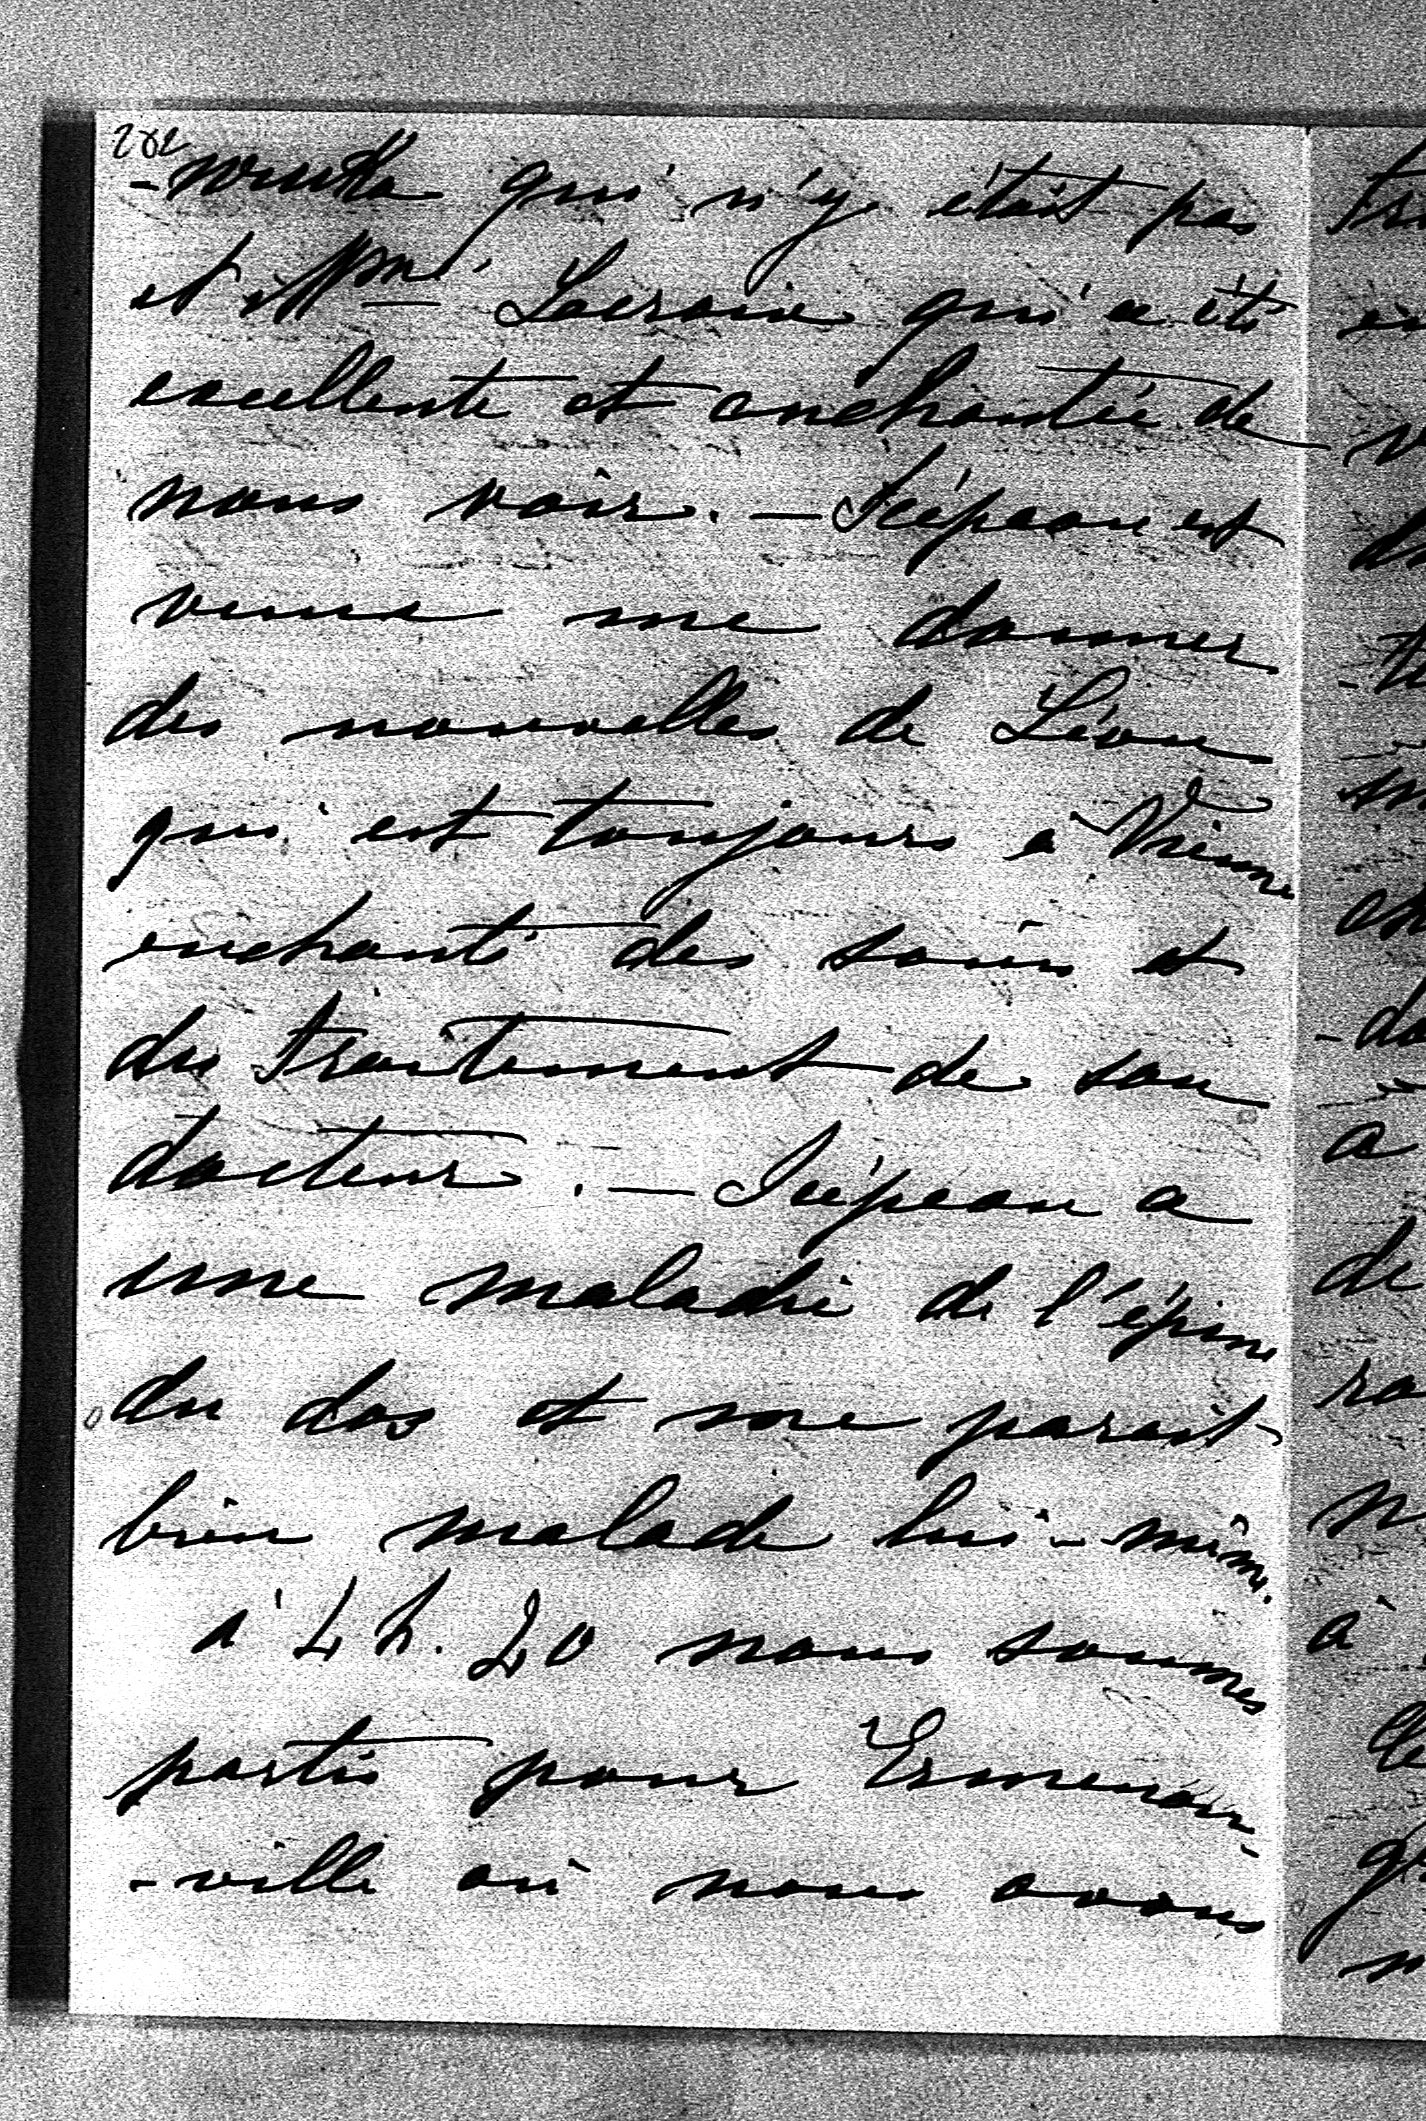 qui n'y était pas
et Mme Lacroix qui a été
excellente et enchantée de
nous voir. — Scépeaux est
venu me donner
des nouvelles de Léon
qui est toujours à Vienne
enchanté des soins et
du traitement de son
docteur. — Scépeaux a
une maladie de l'épine
du dos et me paraît
bien malade lui-même.
à 4 h. 20 nous sommes
partis pour Ermenon-
-ville où nous avons